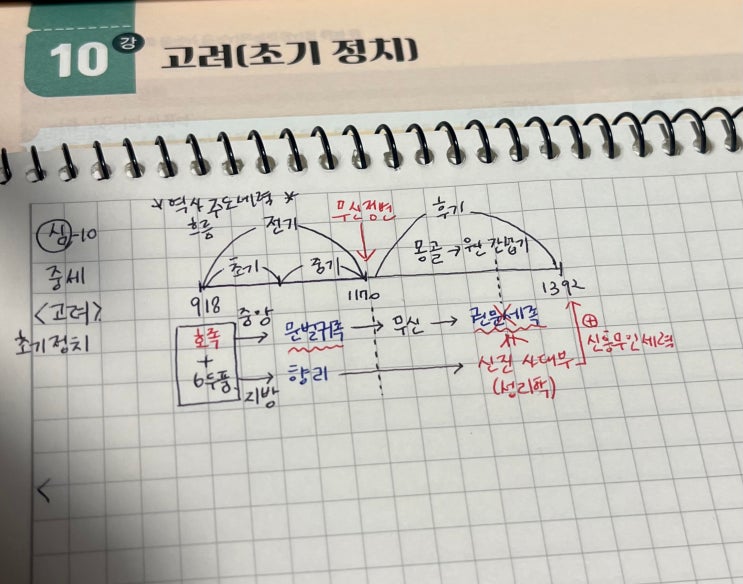 10강 고려(초기 정치)
* 역사 주도세력 *
흐름
전기
무신정변
후기
심-10
몽골 → 원 간섭기
중세
초기
중기
918
1170
1392
<고려>
중앙
초기 정치
호족
문벌귀족 → 무신 → 권문세족
⊕
신흥무인세력
+
6두품
지방
향리
신진 사대부
(성리학)
<